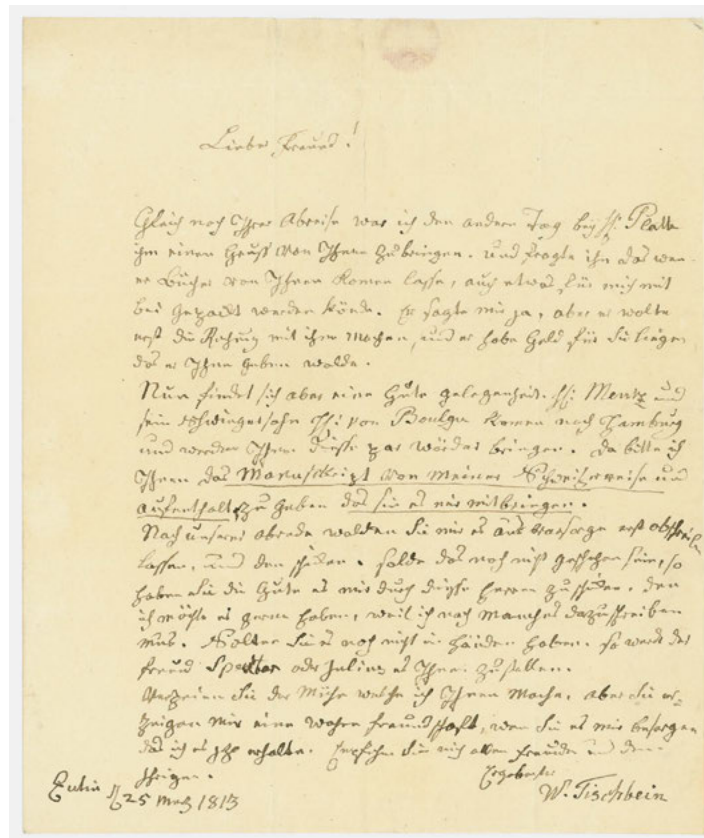 Lieber Freund!
Gleich nach Ihrer Abreise war ich den andern Tag bey H: Platte
ihm einen Gruss von Ihnen zu bringen. und fragte ihn das wen
er Bücher von Ihnen komen lasse, auch etwas für mich mit
bei gepackt werden könde. Er sagte mir ja, aber er wolte
erst die Rechnung mit ihm machen, und er habe Geld für Sie liegen
das er Ihnen geben wolde.
Nun findet sich aber eine Gute gelegenheit. H: Mentz und
sein Schwiegersohn H: von komen nach Hamburg
und werden Ihnen diesse par wörder bringen. Da bitte ich
Ihnen das Manuskript von meiner Schweitzerreise und
Aufenthalt zu geben das sie es mir mitbringen.
Nach unserer abrede wolden Sie mir es aus vorsorge erst abschreiben
lassen, und den schicken. solde das noch nicht geschehen sein, so
haben Sie die Gute es mir durch diesse Herren zu schicken. den
ich möchte es gerne haben, weil ich noch manches dazu schreiben
mus. Solten Sie es noch nicht in Händen haben. so werde der
freund Speckter oder Julius es Ihnen zustellen.
Verzeien Sie der Mühe welche ich Ihnen mache. aber Sie er-
zeigen mir eine wahre freundschaft, wen Sie es mir besorgen
das ich es erhalte. Empfehlen Sie mich allen Freunden und den
Ihrigen.
Ergebenster
Eutin 25 1813
W. Tischbein